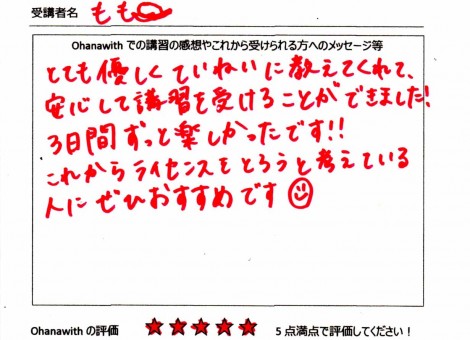 受講者名 もも
Ohanawith での講習の感想やこれから受けられる方へのメッセージ等
とても優しくていねいに教えてくれて、
安心して講習を受けることができました!
3日間ずっと楽しかったです!!
これからライセンスをとろうと考えている
人にぜひおすすめです
Ohanawith の評価 ★★★★★ 5 点満点で評価してください！